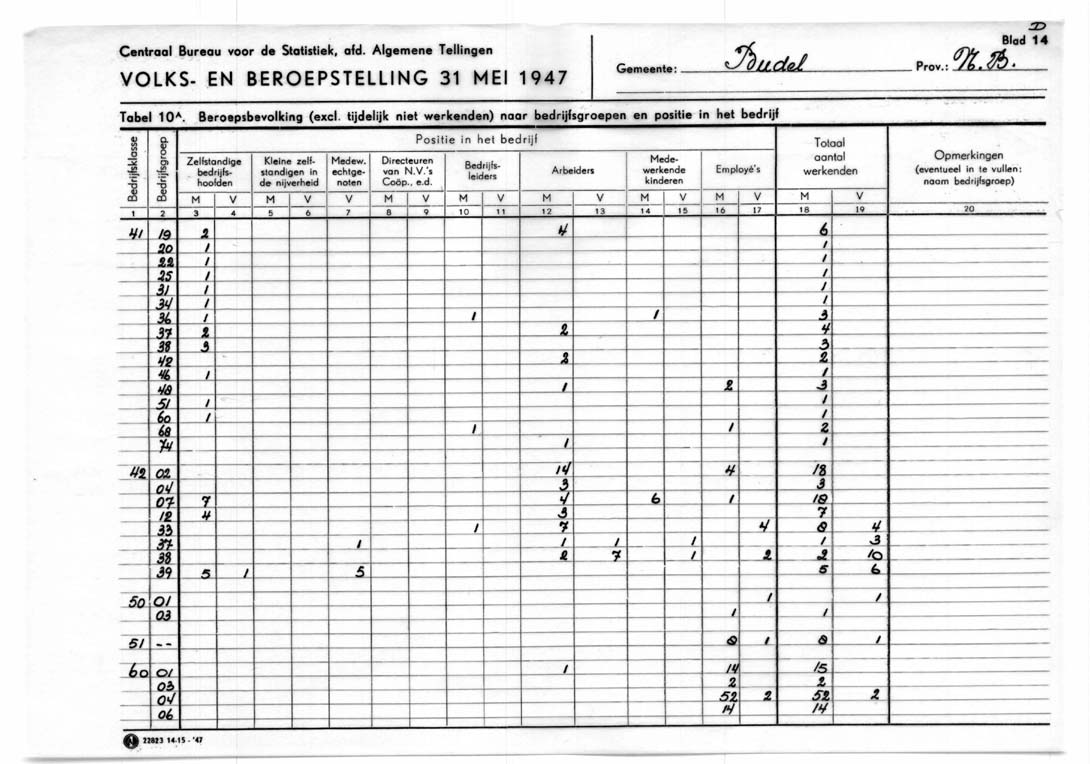 D
Blad 14
Centraal Bureau voor de Statistiek, afd. Algemene Tellingen
VOLKS- EN BEROEPSTELLING 31 MEI 1947
Gemeente: Budel Prov.: N.B.
Tabel 10A. Beroepsbevolking (excl. tijdelijk niet werkenden) naar bedrijfsgroepen en positie in het bedrijf
Bedrijfsklasse Bedrijfsgroep Positie in het bedrijf Totaal aantal werkenden Opmerkingen (eventueel in te vullen: naam bedrijfsgroep)
Zelfstandige bedrijfshoofden Kleine zelfstandigen in de nijverheid Medew. echtgenoten Directeuren van N.V.'s Coöp., e.d. Bedrijfsleiders Arbeiders Medewerkende kinderen Employé's
M V M V V M V M V M V M V M V M V
1 2 3 4 5 6 7 8 9 10 11 12 13 14 15 16 17 18 19 20
41 19 2 4 6
20 1 1
22 1 1
25 1 1
31 1 1
34 1 1
36 1 1 1 3
37 2 2 4
38 3 3
42 2 2
46 1 1
48 1 2 3
51 1 1
60 1 1
68 1 1 2
74 1 1
42 02 14 4 18
04 3 3
07 7 4 6 1 18
12 4 3 7
33 1 7 4 8 4
37 1 1 1 1 1 3
38 2 7 1 2 2 10
39 5 1 5 5 6
50 01 1 1
03 1 1
51 -- 8 1 8 1
60 01 1 14 15
03 2 2
04 52 2 52 2
06 14 14
22823 14-15 - '47